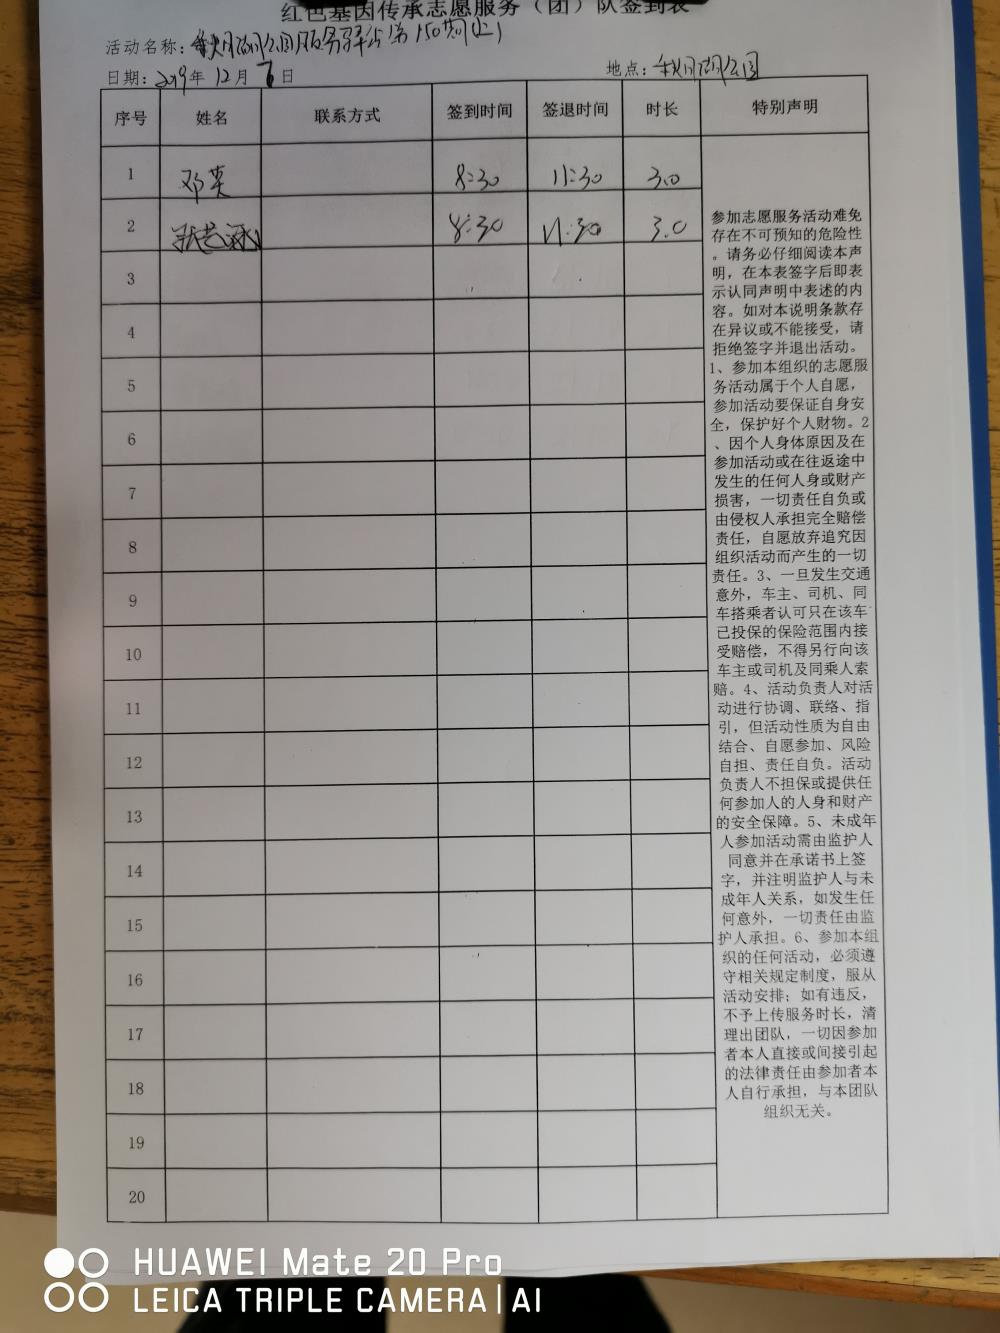 红色基因传承志愿服务（团）队签到表
活动名称：秋月湖公园服务驿站第150期(上)
日期：2019年12月7日 地点：秋月湖公园
序号 姓名 联系方式 签到时间 签退时间 时长 特别声明
1 邓英 8:30 11:30 3.0
2 8:30 11:30 3.0
3
4
5
6
7
8
9
10
11
12
13
14
15
16
17
18
19
20
参加志愿服务活动难免
存在不可预知的危险性
。请务必仔细阅读本声
明，在本表签字后即表
示认同声明中表述的内
容。如对本说明条款存
在异议或不能接受，请
拒绝签字并退出活动。
1、参加本组织的志愿服
务活动属于个人自愿，
参加活动要保证自身安
全，保护好个人财物。2
、因个人身体原因及在
参加活动或在往返途中
发生的任何人身或财产
损害，一切责任自负或
由侵权人承担完全赔偿
责任，自愿放弃追究因
组织活动而产生的一切
责任。3、一旦发生交通
意外，车主、司机、同
车搭乘者认可只在该车
已投保的保险范围内接
受赔偿，不得另行向该
车主或司机及同乘人索
赔。4、活动负责人对活
动进行协调、联络、指
引，但活动性质为自由
结合、自愿参加、风险
自担、责任自负。活动
负责人不担保或提供任
何参加人的人身和财产
的安全保障。5、未成年
人参加活动需由监护人
同意并在承诺书上签
字，并注明监护人与未
成年人关系，如发生任
何意外，一切责任由监
护人承担。6、参加本组
织的任何活动，必须遵
守相关规定制度，服从
活动安排；如有违反，
不予上传服务时长，清
理出团队，一切因参加
者本人直接或间接引起
的法律责任由参加者本
人自行承担，与本团队
组织无关。
HUAWEI Mate 20 Pro
LEICA TRIPLE CAMERA | AI